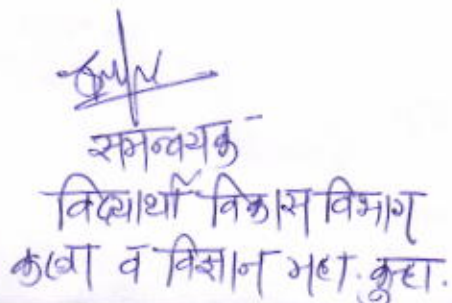 समन्वयक
विद्यार्थी विकास विभाग
कला व विज्ञान महा. कुऱ्हा.